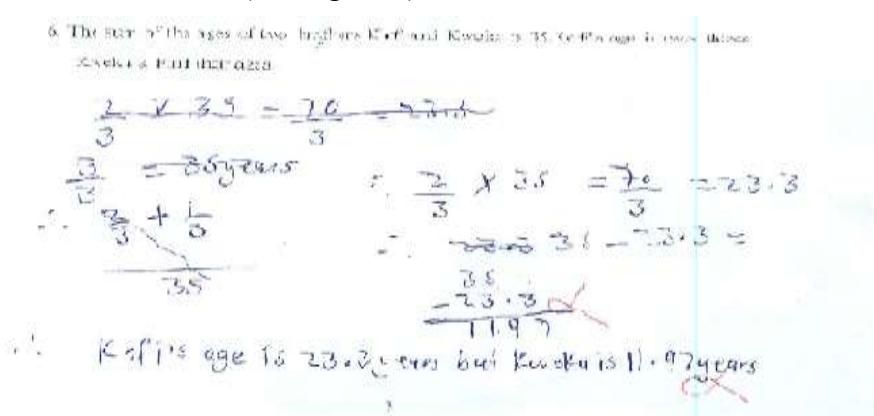 6. The sum of the ages of two brothers Kofi and Kweku is 35. Kofi's age is
Kweku's. Find their ages
2/3 × 35 = 70/3
3/3 = 35years
∴ 2/3 + 1/3
35
∴ 2/3 × 35 = 70/3 = 23.3
∴ 35 - 23.3 =
35
- 23.3
11.97
∴ Kofi's age is 23.3 years but Kweku is 11.97years